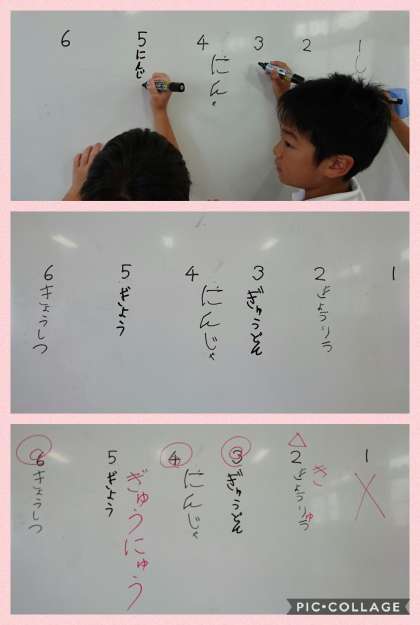 1
2
3
4
にん
5
にんじ
6
1
2
3
ぎゅうどん
4
にんじゃ
5
ぎょう
6
きょうしつ
1
2
き
ゅ
3
ぎゅうどん
4
にんじゃ
5
ぎょう
ぎゅうにゅう
6
きょうしつ
PIC•COLLAGE